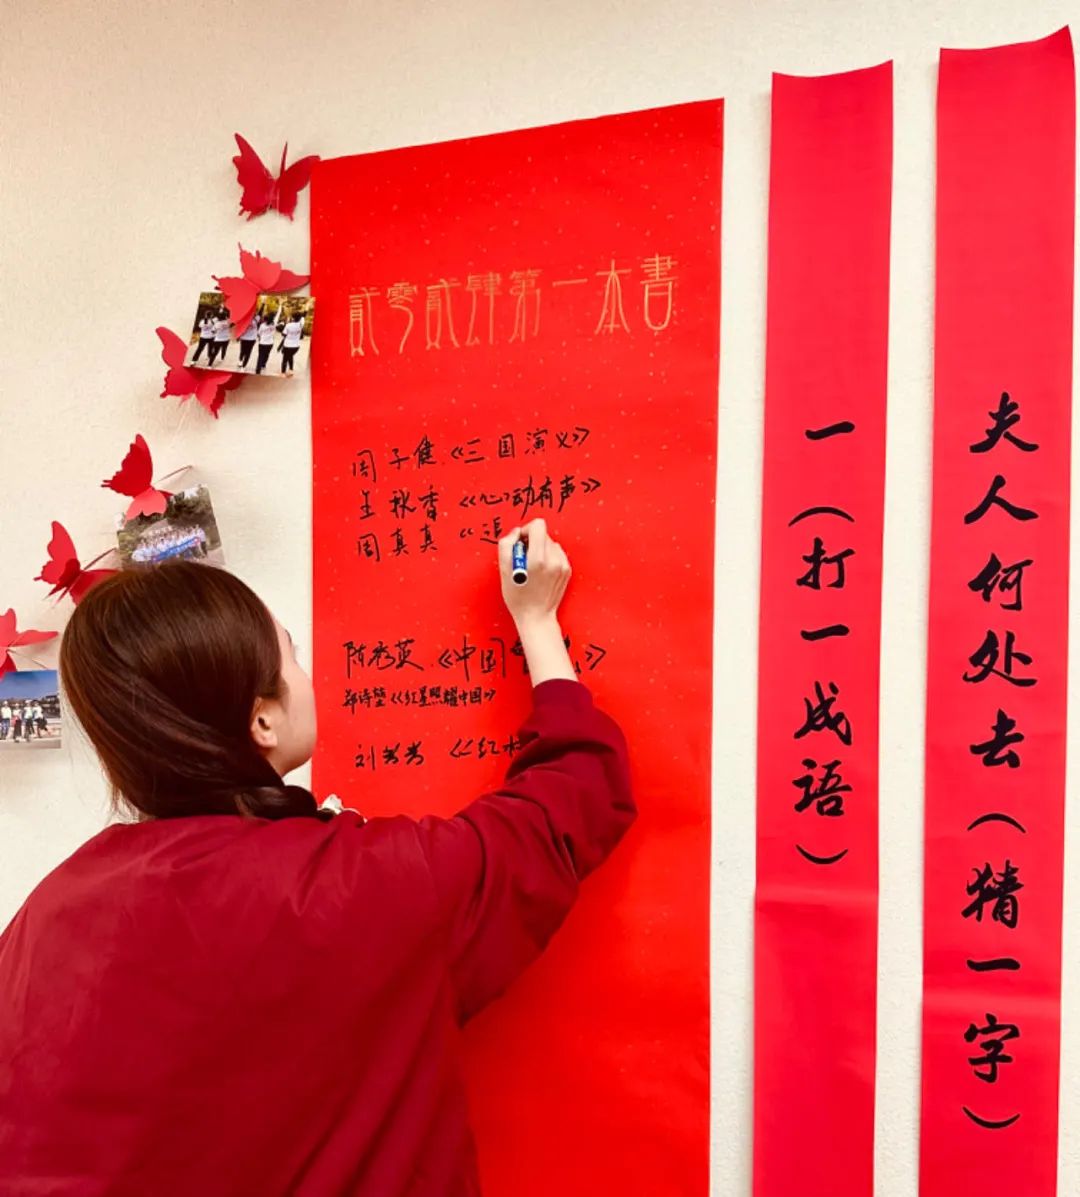 貳零貳肆第一本書
周子健《三国演义》
王秋香《心动有声》
周真真《追
陈秀英《中国》
郑诗《红星照耀中国》
刘芳芳《红
一（打一成语）
夫人何处去（猜一字）